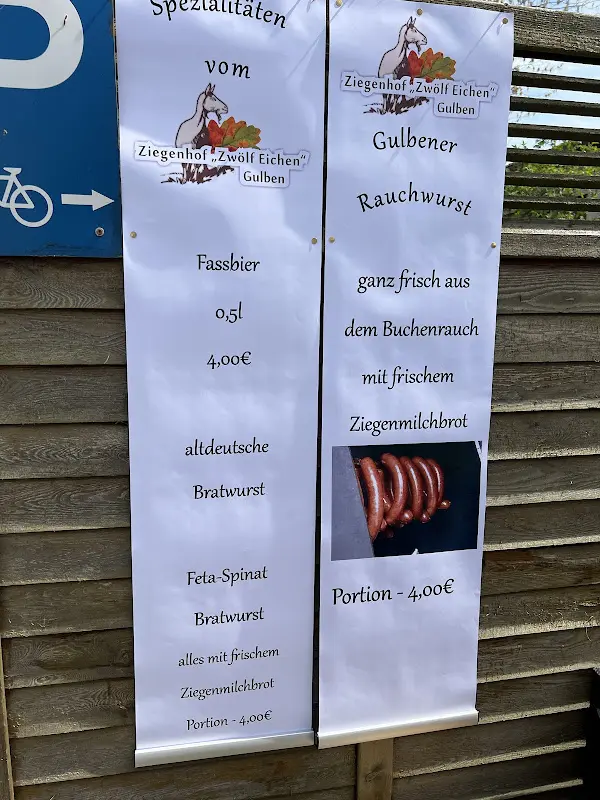 Spezialitäten
vom
Ziegenhof „Zwölf Eichen“
Gulben
Fassbier
0,5l
4,00€
altdeutsche
Bratwurst
Feta-Spinat
Bratwurst
alles mit frischem
Ziegenmilchbrot
Portion - 4,00€
Ziegenhof „Zwölf Eichen“
Gulben
Gulbener
Rauchwurst
ganz frisch aus
dem Buchenrauch
mit frischem
Ziegenmilchbrot
Portion - 4,00€